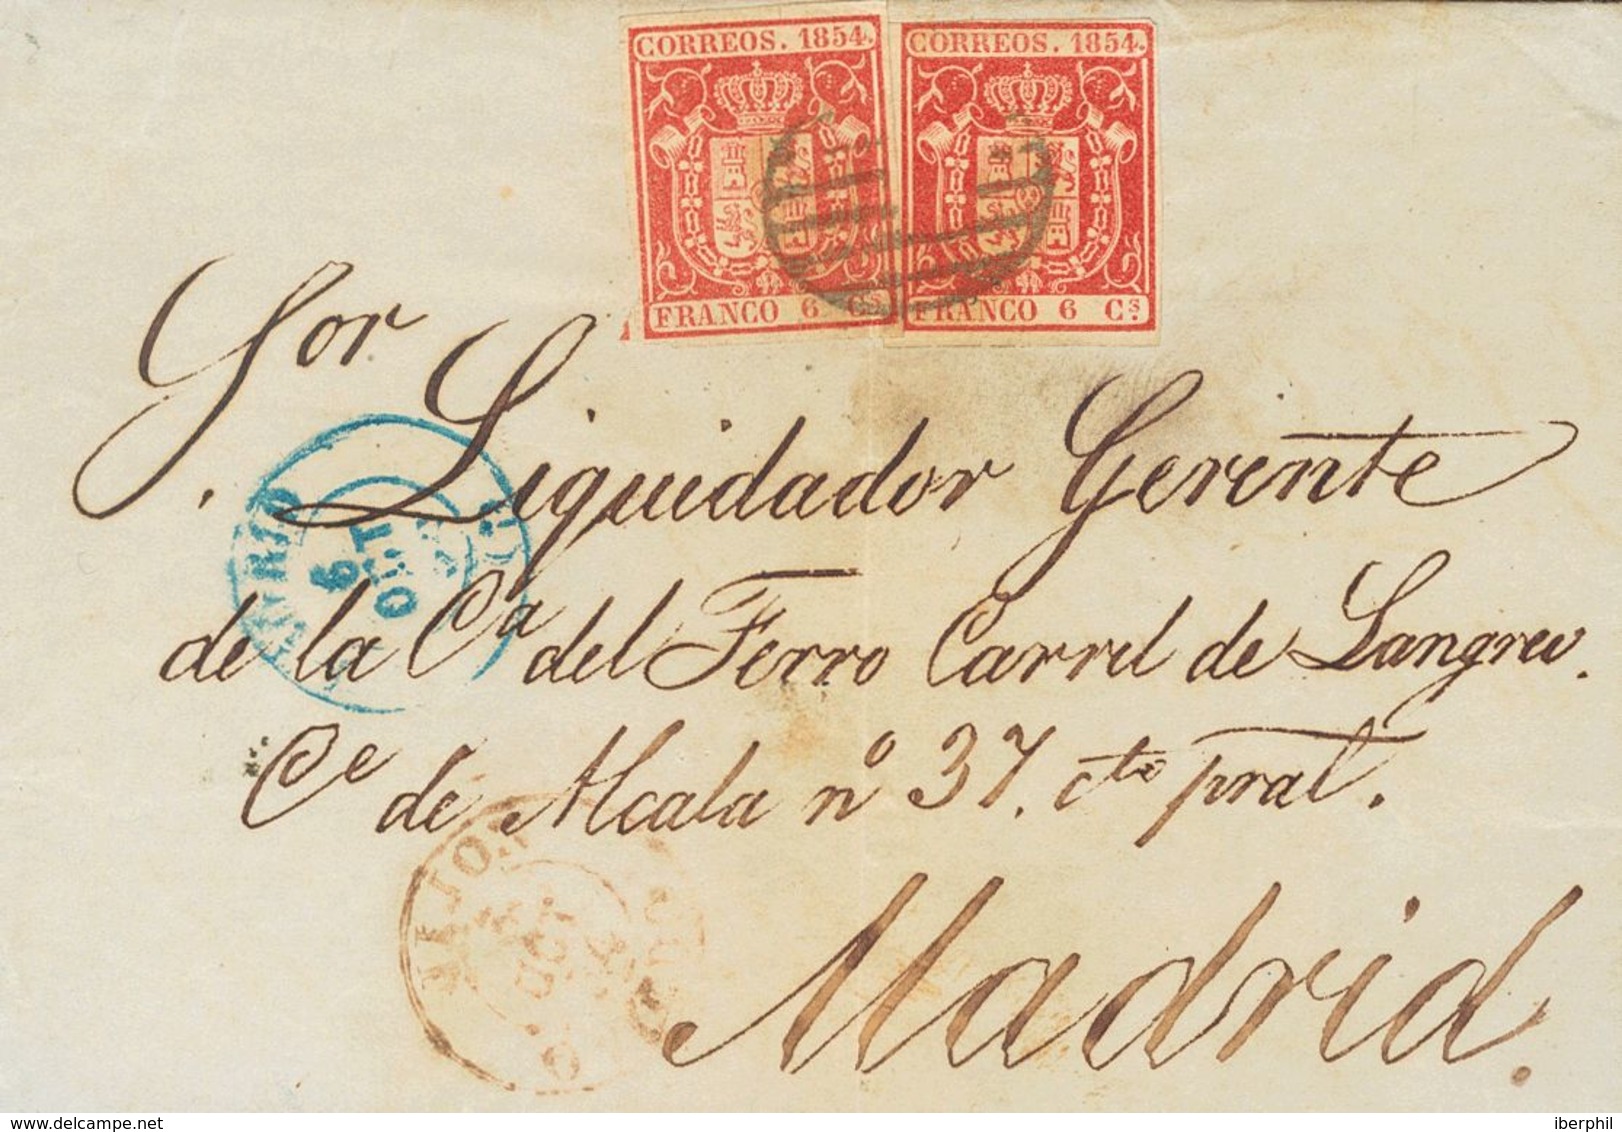 CORREOS. 1854.
FRANCO 6 Cs.
CORREOS. 1854.
FRANCO 6 Cs.
Sor
Liquidador Gerente
de la Ca del Ferro Carril de Langreo.
Ce de Alcala no 37. cto pral.
Madrid.
MADRID
6
OCT
GIJON
OCT
delcampe.net
iberphil